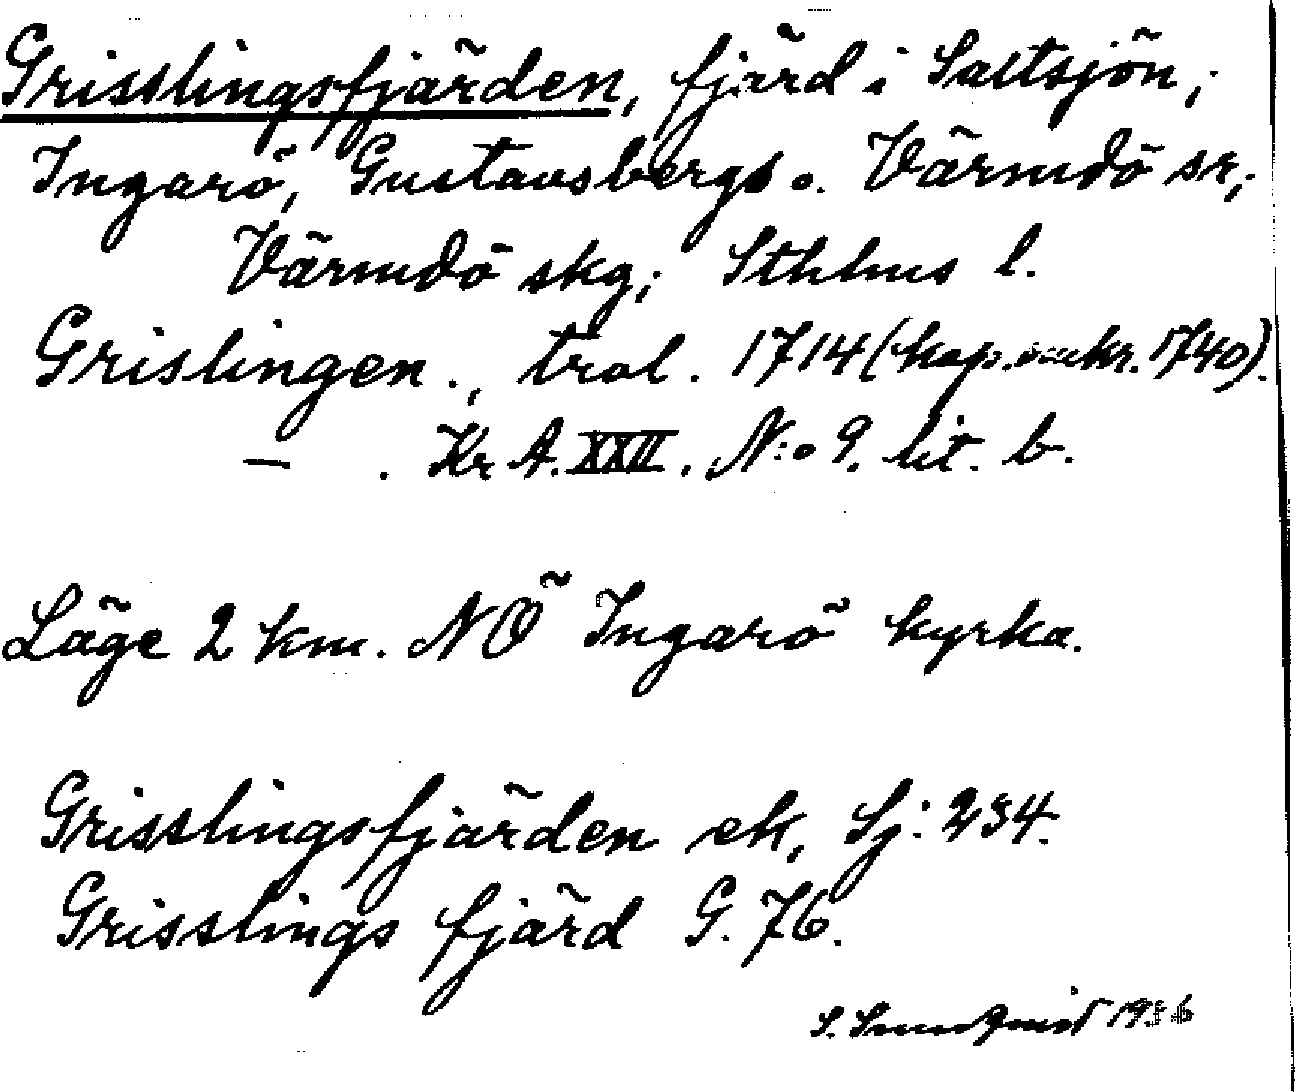 Grisslingsfjärden, fjärd i Saltsjön;
Ingarö, Gustavsbergs o. Värmdö sr;
Värmdö skg; Sthlms l.
Grislingen ., trol. 1714 (kop. omkr. 1740).
— . Kr A. XXII. N:o 9. lit. b.
Läge 2 km. NÖ Ingarö kyrka.
Grisslingsfjärden ek, Sj: 234.
Grisslings fjärd G. 76.
S. 1936